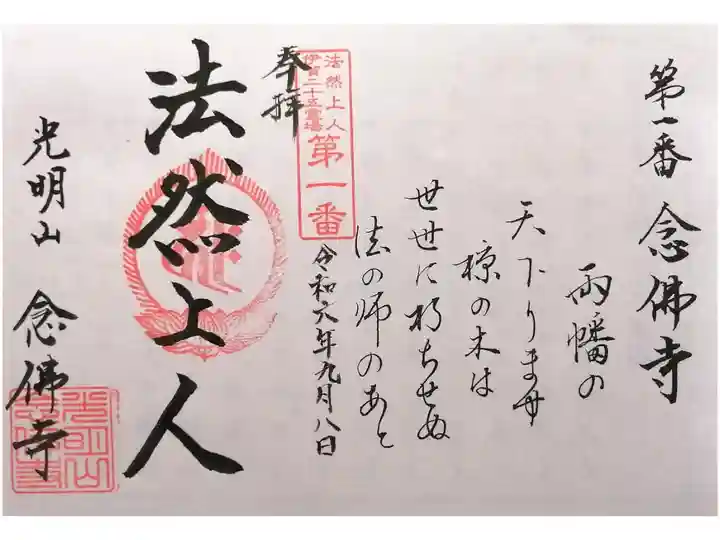 第一番 念佛寺
両幡の
天下りませ
椋の木は
世世に朽ちせぬ
法の师のあと
法然上人
伊賀二十五霊場
第一番
令和六年九月八日
奉拝
法然上人
光明山 念佛寺
光明山
念佛寺